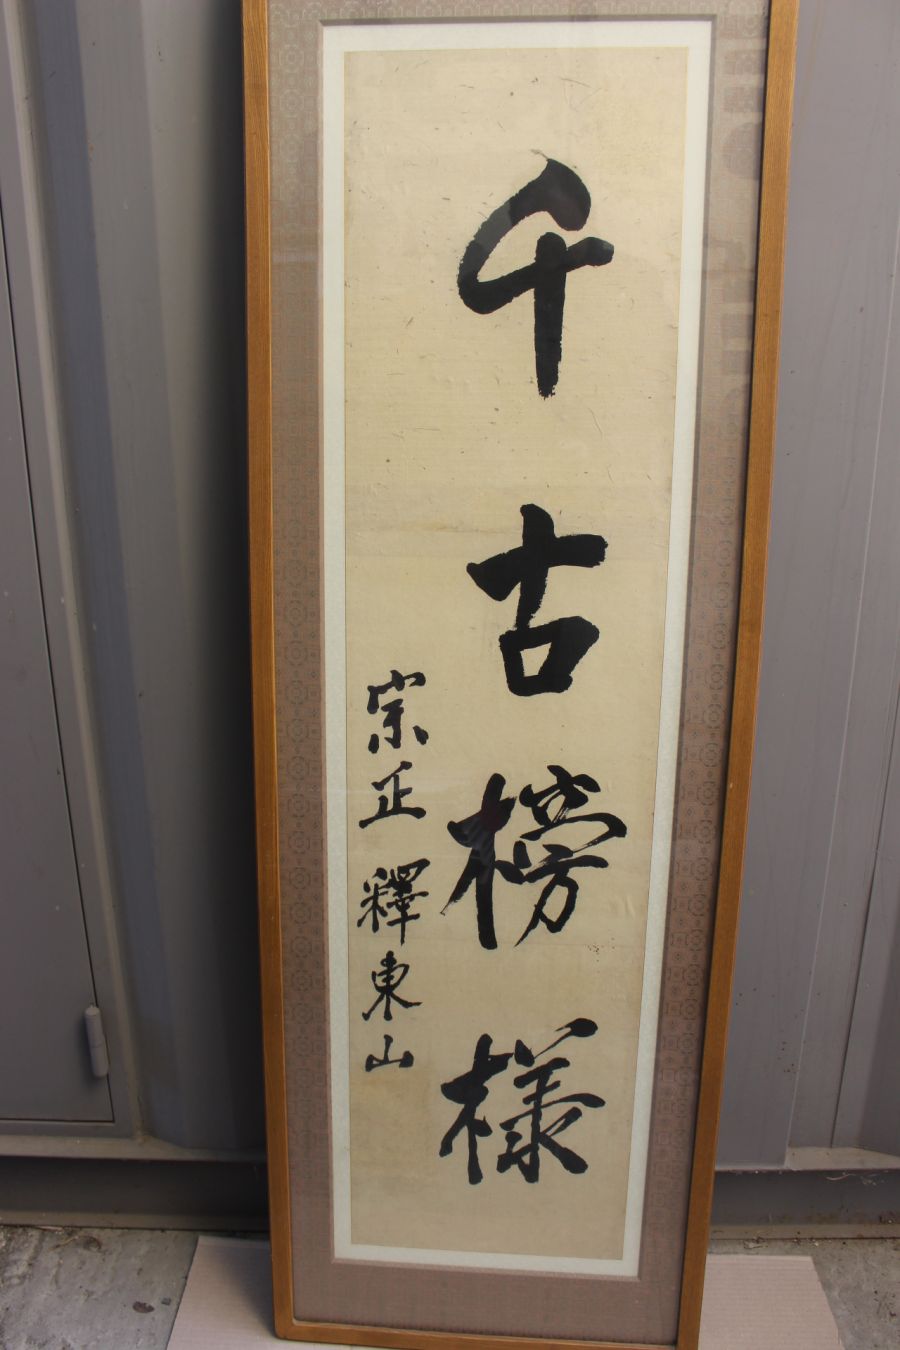 千古榜樣
宗正釋東山